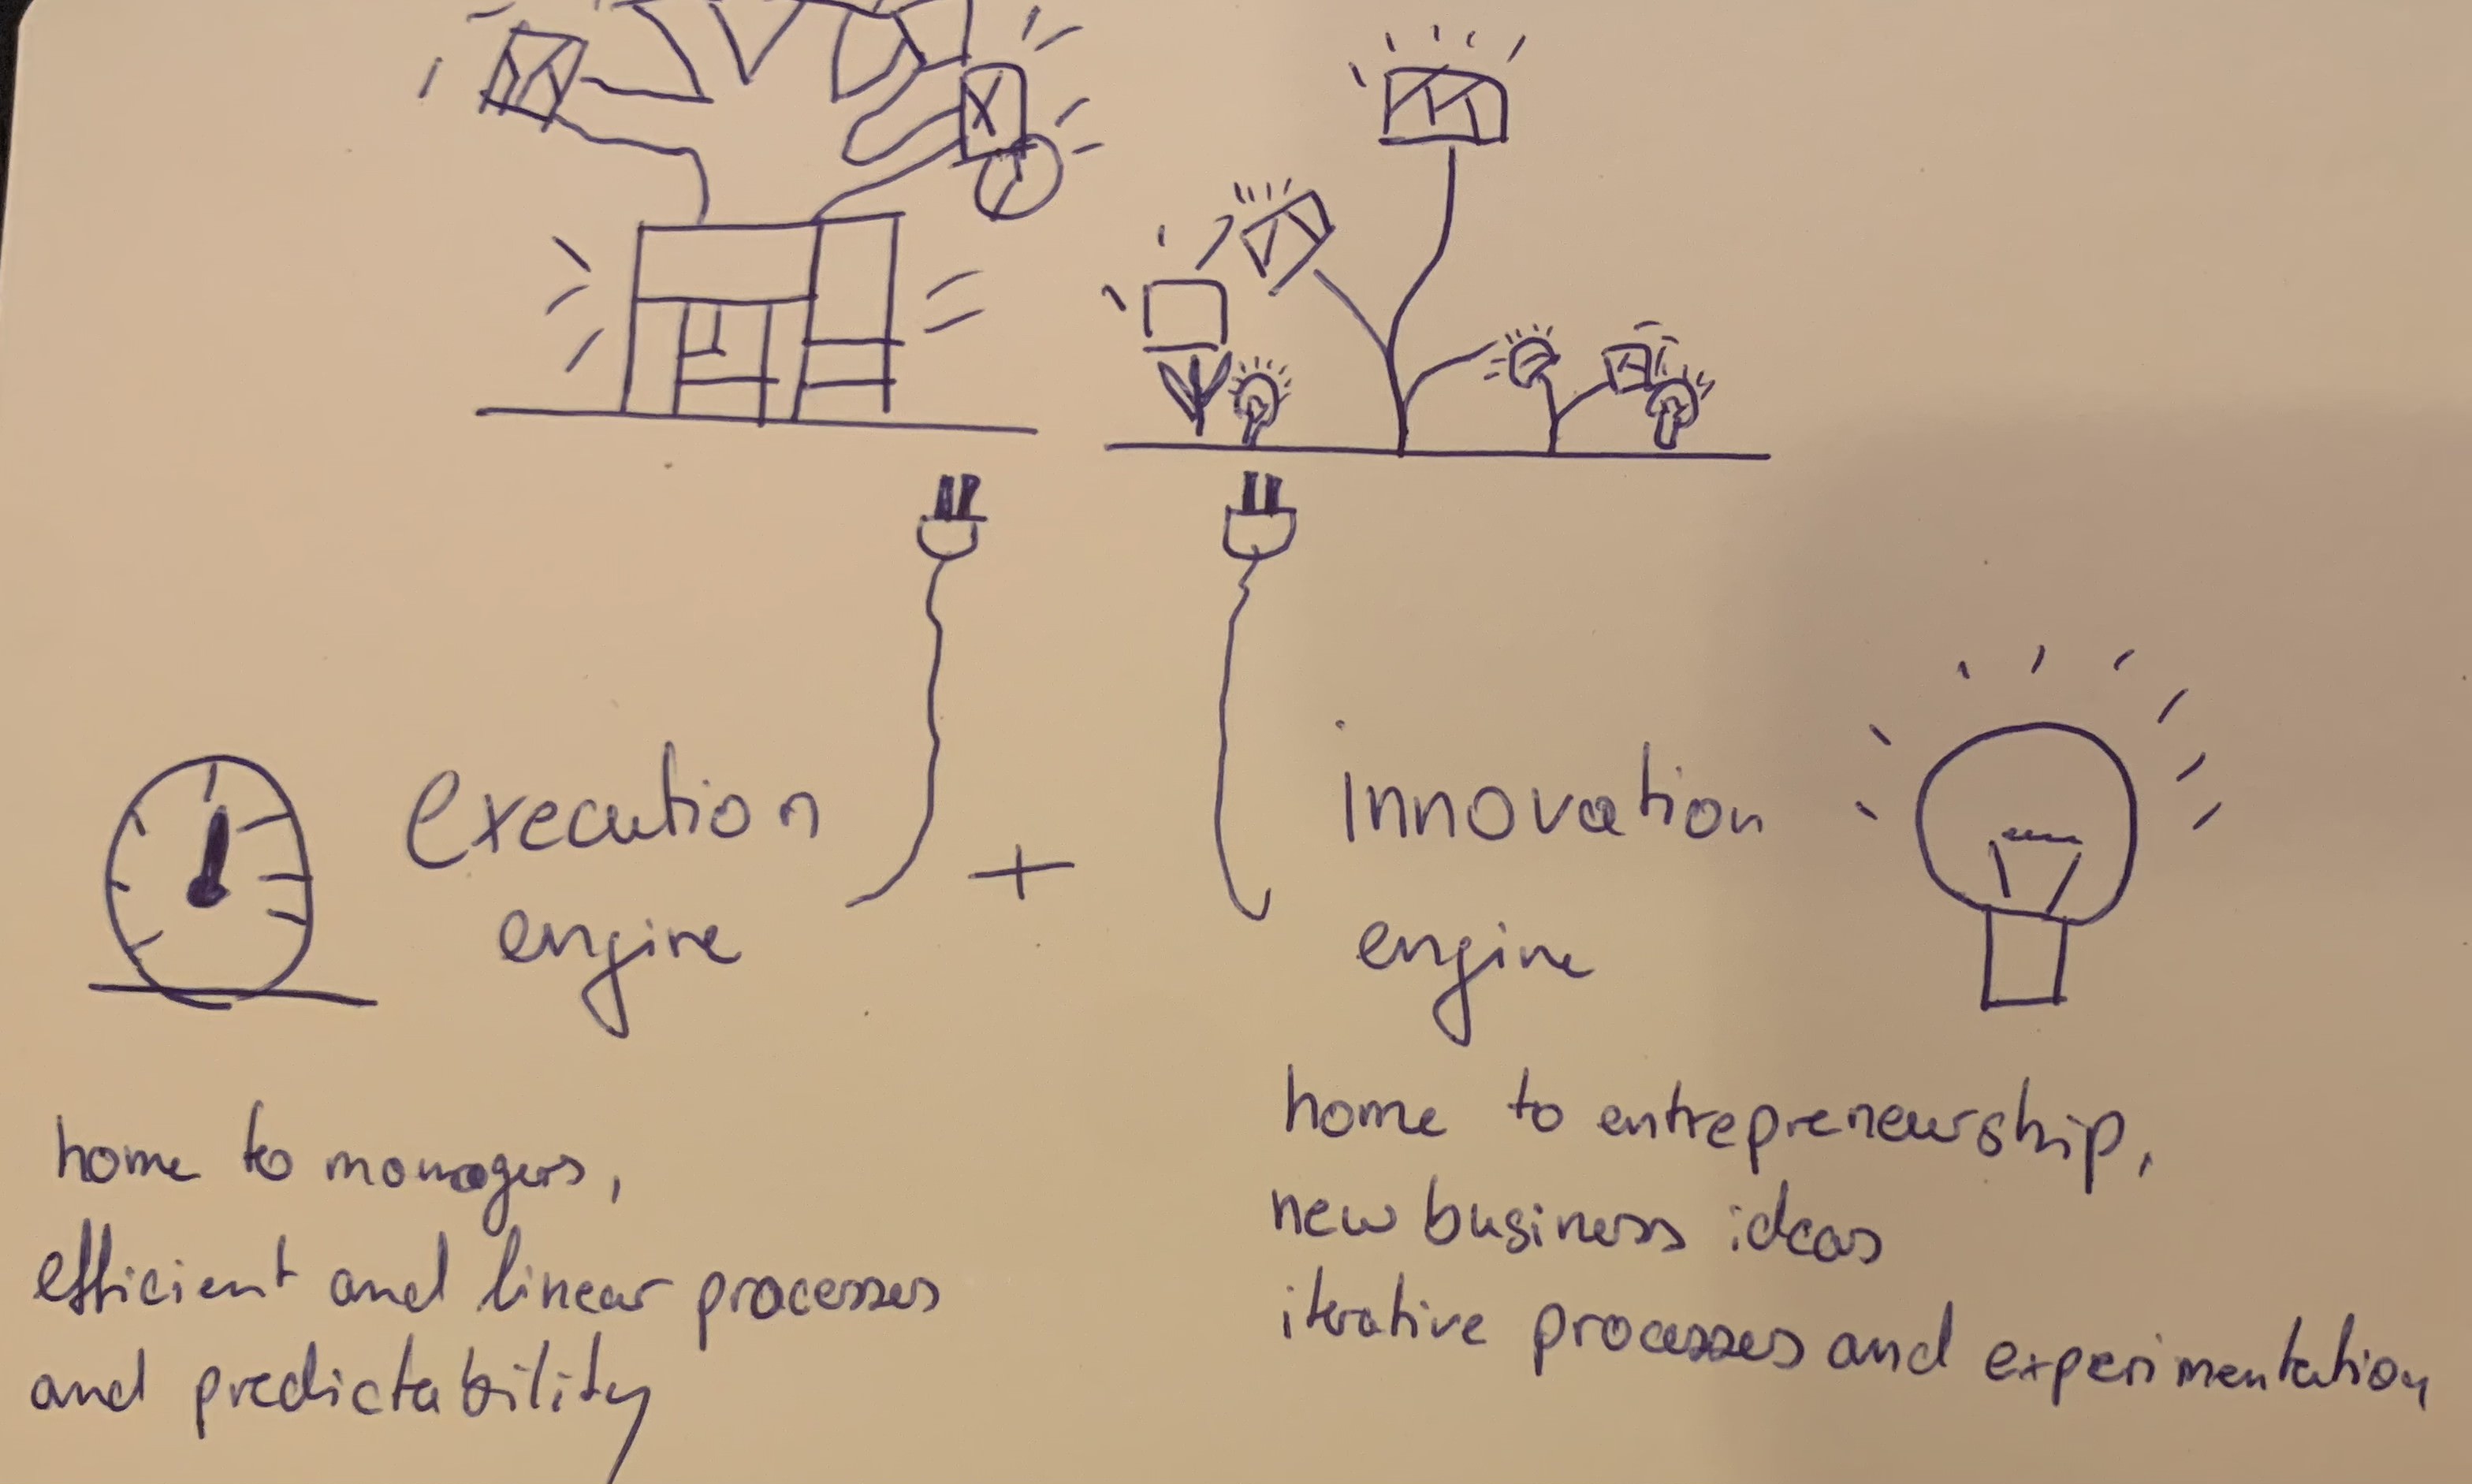 execution
engine
+
innovation
engine
home to managers,
efficient and linear processes
and predictability
home to entrepreneurship,
new business ideas
iterative processes and experimentation